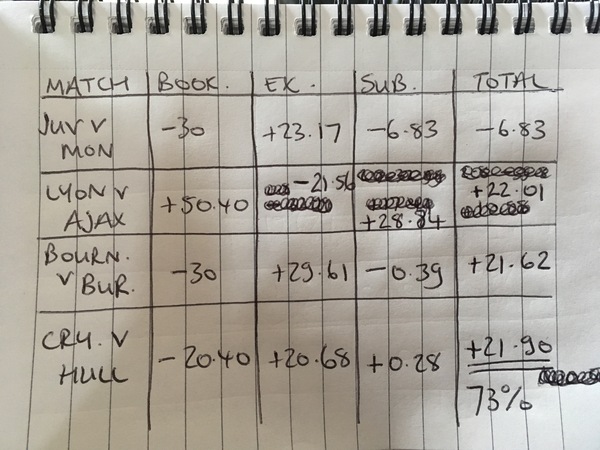 MATCH BOOK. EX. SUB. TOTAL
JUV V MON -30 +23.17 -6.83 -6.83
LYON V AJAX +50.40 -21.56 +28.84 +22.01
BOURN. V BUR. -30 +29.61 -0.39 +21.62
CRY. V HULL -20.40 +20.68 +0.28 +21.90
73%